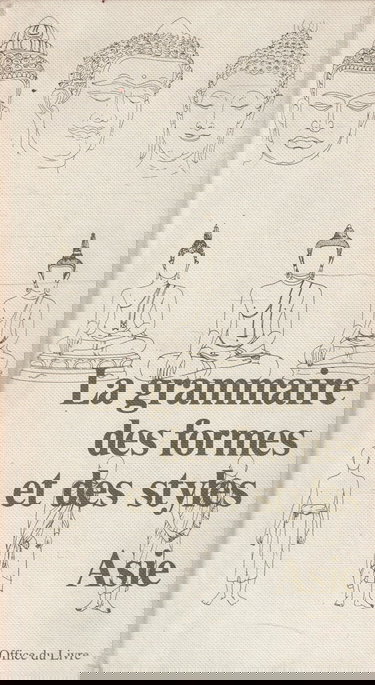 La grammaire
des formes
et des styles
Asie
Office du Livre